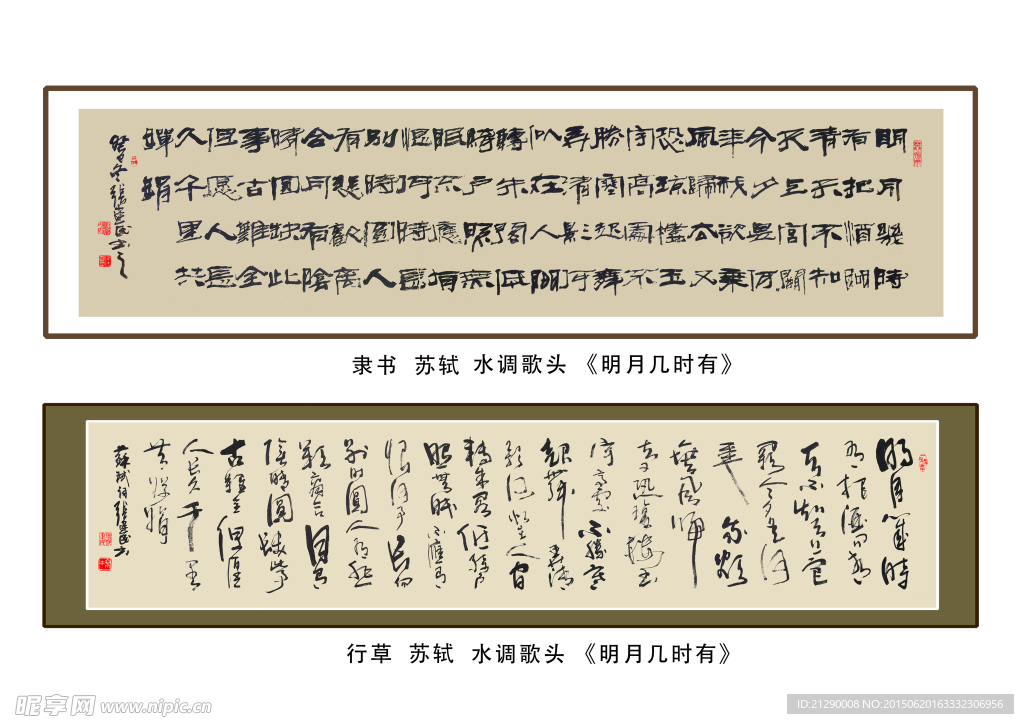 明月幾時
有把酒問
青天不知
天上宮闕
今夕是何
年我欲乘
風歸去又
恐瓊樓玉
宇高處不
勝寒起舞
弄清影何
似在人間
轉朱閣低
綺戶照無
眠不應有
恨何事長
別時圓人
有悲歡離
合月有陰
晴圓缺此
事古難全
但願人長
久千里共
嬋娟
隶书 苏轼 水调歌头《明月几时有》
明月幾時
有把酒問青
天不知天上宮
闕今夕是何
年我欲
乘風歸
去又恐瓊樓玉
宇高處不勝寒
起舞弄清
影何似在人間
轉朱閣低綺戶
照無眠不應有
恨何事長向
別時圓人有悲
歡離合月有
陰晴圓缺此事
古難全但願
人長久千里
共嬋娟
行草 苏轼 水调歌头《明月几时有》
昵享网 www.nipic.cn
ID:21290008 NO:20150620163332306956